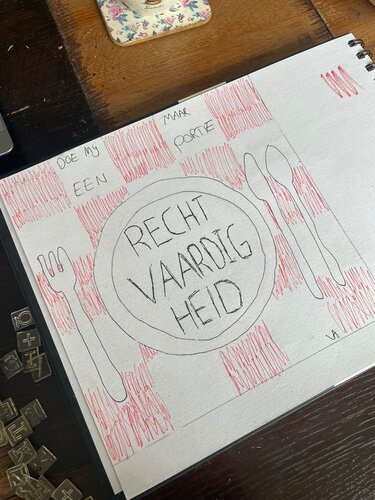 DOE MIJ MAAR
EEN PORTIE
RECHT
VAARDIG
HEID